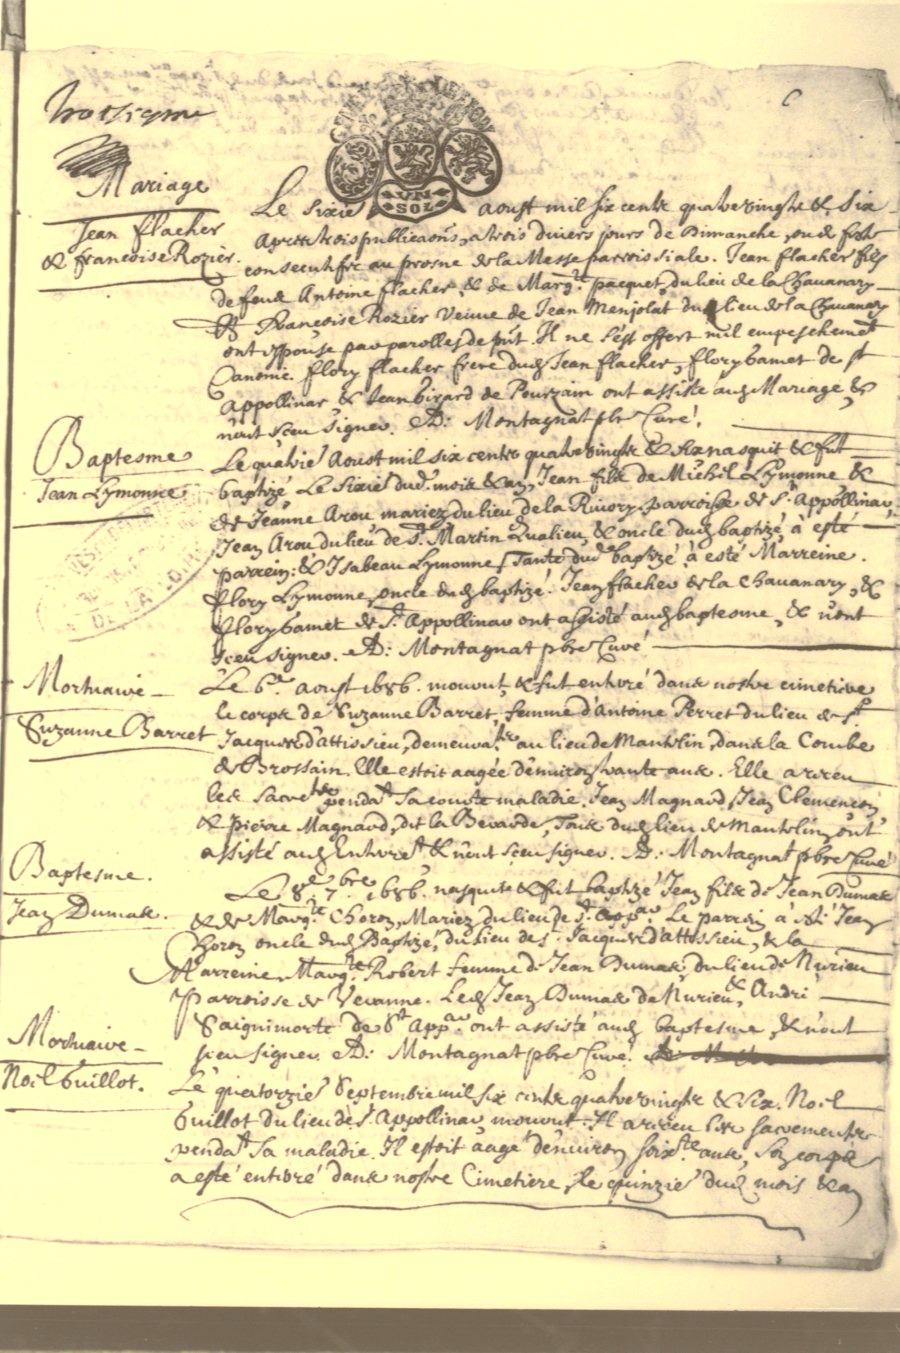 troisiyme
GENER
UN
SOL
Mariage
Jean flacher
& francoise Rozier.
Le sixié aoust mil six cents quatrevingts & six
apres trois publicaons, a trois divers jours de Dimanche, ou de festes
consecutifs au prosne de la Messe parroissiale. Jean flacher fils
de feu Antoine flacher, & de Marg.te pacquet, du lieu de la Chavanary
& françoise Rozier veuve de Jean Menjolat du lieu de la Chavanary
ont espouse par parolles de pnt. Il ne s'est offert nul empeschemet
Canonic. flory flacher frere dud Jean flacher, flory Gamet de st
Appollinar & Jean Girard de Pourzain ont assisté aud Mariage, &
n'ont sceu signer. A: Montagnat pbre Curé.
Baptesme
Jean Lymonne
Le quatrié Aoust mil six cents quatrevingts & six nasquit & fut
baptizé Le sixié dud. mois & an, Jean fils de Michel Lymonne &
de Jeanne Arou mariez du lieu de la Rivory parroisse de St. Appollinar,
Jean Arou du lieu de St. Martin Qualieu, & oncle dud baptizé, à esté
parrein: & Isabeau Lymonne, Tante dud baptizé à esté Marreine.
flory Lymonne, oncle dud baptizé. Jean flacher de la Chavanary, &
flory Gamet de St. Appollinar ont assisté aud baptesme, & n'ont
sceu signer. A: Montagnat pbre Curé
DE LA LOIRE
Mortuaire
Suzanne Barret
Le 6.e aoust 1686. mourut, & fut enterré dans nostre cimetiere
le corps de Suzanne Barret, femme d'Antoine Perret du lieu de st
Jacques d'attissieu, demeurat au lieu de Mantelin, dans la Combe
de Brossain. Elle estoit aagée d'environ trante ans. Elle a receu
les sacrets pendat sa courte maladie. Jean Magnard, Jean Clemençon
& pierre Magnard, dit la Bevarde, Tous dud lieu de Mantelin, ont
assisté aud Enterret & n'ont sceu signer. A: Montagnat pbre Curé
Baptesme.
Jean Dumas.
Le 8.e 7.bre 1686. nasquit & fut baptizé Jean fils de Jean Dumas
& de Marg.te Choron, Mariez du lieu de St. Appar. Le parrein à été Jean
Choron oncle dud Baptizé, du lieu de St. Jacques d'attissieu, & la
Marreine Marg.te Robert femme de Jean Dumas, du lieu de Nurieu
Parroisse de Veranne. Led Jean Dumas de Nurieu, & André
Saignimorte de St Appar. ont assisté aud baptesme, & n'ont
sceu signer. A: Montagnat pbre Curé.
Mortuaire
Noël Guillot.
Le quatorzié Septembre mil six cents quatrevingts & six. Noël
Guillot du lieu de St. Appollinar, mourut. Il a receu les sacrements
pendat sa maladie. Il estoit aagé d'environ soixte ans, Son corps
a esté enterré dans nostre Cimetiere, le quinzié dud mois & an